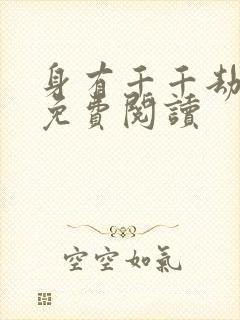 身有千千劫
免費閱讀
空空如氣